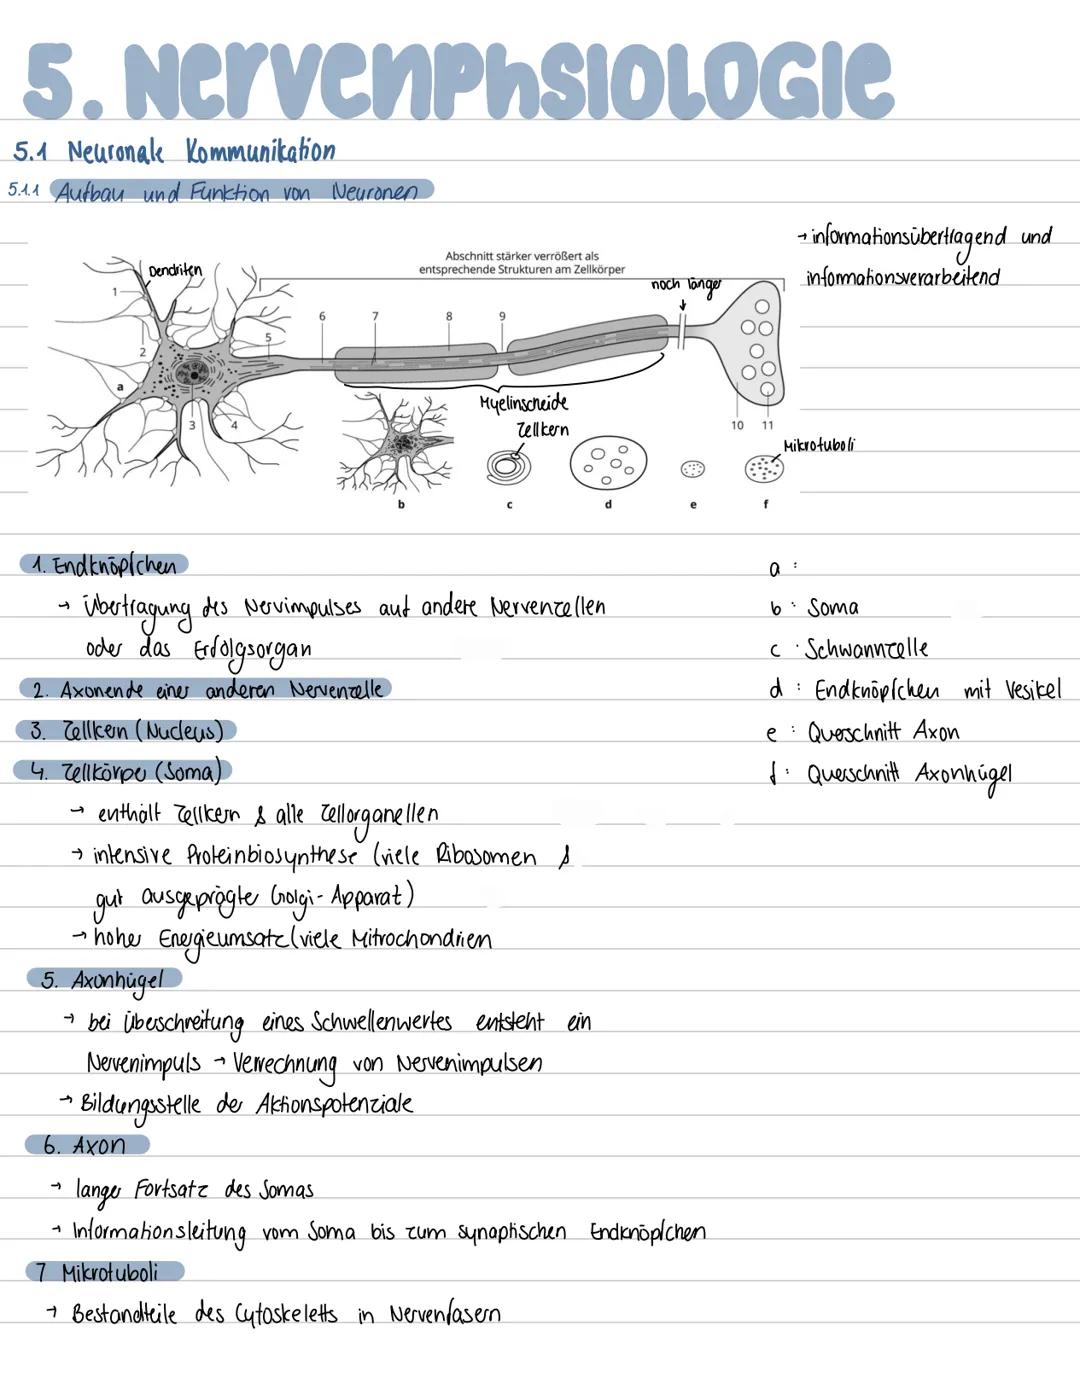 5. Nervenphsiologie
5.1 Neuronale Kommunikation
5.1.1 Aufbau und Funktion von Neuronen
→ informationsübertragend und
informationsverarbeitend
Abschnitt stärker verrößert als
entsprechende Strukturen am Zellkörper
Dendriten
noch länger
1
2
3
4
5
6
7
8
9
10
11
a
Myelinscheide
Zellkern
Mikrotuboli
b
c
d
e
f
1. Endknöpfchen
→ Übertragung des Nervimpulses auf andere Nervenzellen
oder das Erfolgsorgan
2. Axonende einer anderen Nervenzelle
3. Zellkern (Nucleus)
4. Zellkörper (Soma)
→ enthält Zellkern & alle Zellorganellen
→ intensive Proteinbiosynthese (viele Ribosomen &
gut ausgeprägte Golgi-Apparat)
→ hoher Energieumsatz (viele Mitrochondrien
5. Axonhügel
→ bei Überschreitung eines Schwellenwertes entsteht ein
Nervenimpuls → Verrechnung von Nervenimpulsen
→ Bildungsstelle der Aktionspotenziale
6. Axon
→ langer Fortsatz des Somas
→ Informationsleitung vom Soma bis zum synaptischen Endknöpfchen
7 Mikrotuboli
→ Bestandteile des Cytoskeletts in Nervenfasern
a :
b : Soma
c : Schwannzelle
d : Endknöpfchen mit Vesikel
e : Querschnitt Axon
f : Querschnitt Axonhügel